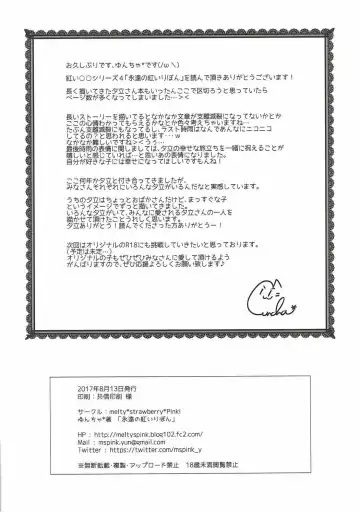 お久しぶりです、ゆんちゃ*です(/ω＼)
紅い○○シリーズ4「永遠の紅いりぼん」を読んで頂きありがとうございます！
長く描いてきた夕立さん本もいったんここで区切ろうと思っていたら
ページ数が多くなってしまいました…＞＜
長いストーリーを描いてるとなかなか文章が支離滅裂になってないかとか
ここの心情わかってもらえるかなとか色々考えちゃいますね…
たぶん支離滅裂にもなってるし、ラスト時雨はなんであんなにニコニコ
してるの？と思われると思います…w
なかなか難しいですねぇ＞＜うぅ…
最後時雨の表情に関しましては、夕立の幸せな旅立ちを一緒に祝えることが
嬉しいと感じていれば…と思いあの表情になりました。
自分が好きな子には幸せになってほしいですもんね！
ここ何年か夕立と付き合ってきましたが、
みなさんそれぞれにいろんな夕立がいるんだなと実感しています。
うちの夕立はちょっとおばかさんだけど、まっすぐな子
というイメージでずっと描いてきました。
いろんな夕立がいて、みんなに愛される夕立さんの一人を
描かせて頂けてことうれしく思います。
夕立ありがとう！読んでくださった方ありがとうー！
次回はオリジナルのR18にも挑戦していきたいと思っております。
(予定は未定…)
オリジナルの子もぜひぜひみなさんに愛して頂けるよう
がんばりますので、ぜひ応援よろしくお願い致します♪
2017年8月13日発行
印刷：弥信印刷 様
サークル：melty*strawberry*Pink!
ゆんちゃ*著 「永遠の紅いりぼん」
HP : http://meltyspink.blog102.fc2.com/
Mail : mspink.yun@gmail.com
Twitter : https://twitter.com/mspink_y
※無断転載・複製・アップロード禁止 18歳未満閲覧禁止